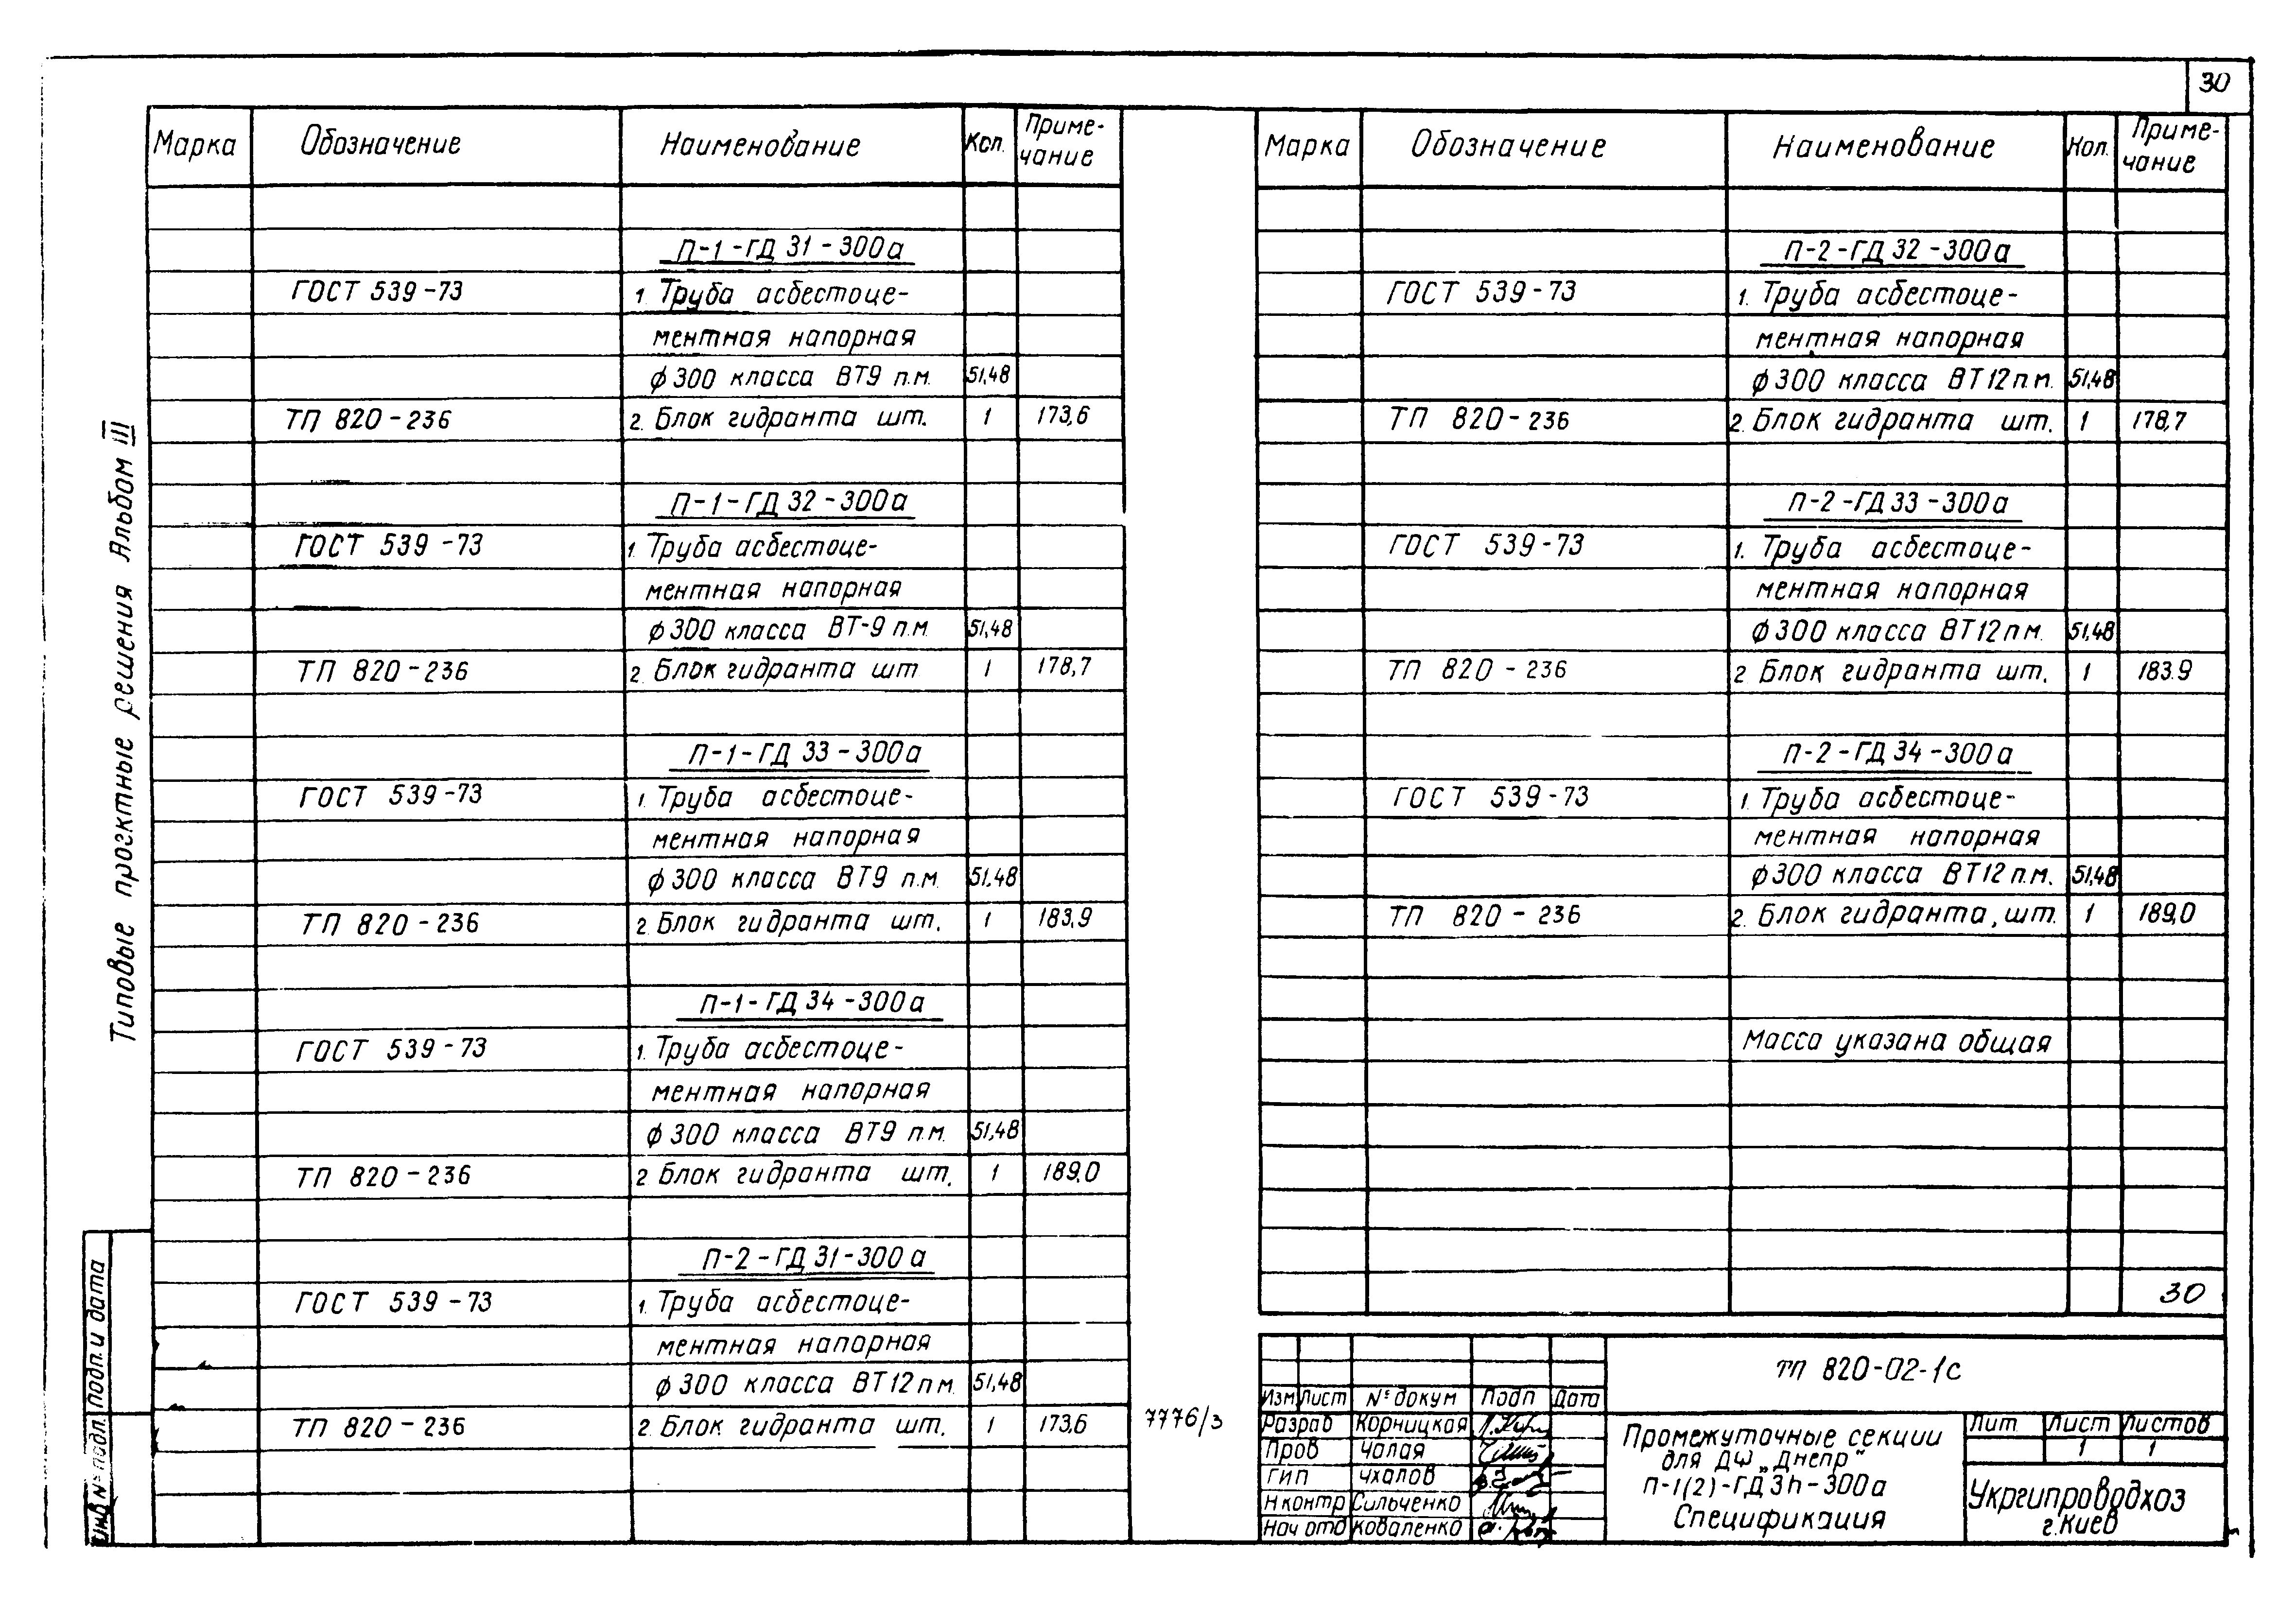 30
Марка Обозначение Наименование Кол. Приме-
чание
П-1-ГД 31-300а
ГОСТ 539-73 1. Труба асбестоце-
ментная напорная
ф300 класса ВТ9 п.м. 51,48
ТП 820-236 2. Блок гидранта шт. 1 173,6
П-1-ГД 32-300а
ГОСТ 539-73 1. Труба асбестоце-
ментная напорная
ф300 класса ВТ-9 п.м 51,48
ТП 820-236 2. Блок гидранта шт 1 178,7
П-1-ГД 33-300а
ГОСТ 539-73 1. Труба асбестоце-
ментная напорная
ф300 класса ВТ9 п.м. 51,48
ТП 820-236 2. Блок гидранта шт. 1 183,9
П-1-ГД 34-300а
ГОСТ 539-73 1. Труба асбестоце-
ментная напорная
ф300 класса ВТ9 п.м. 51,48
ТП 820-236 2 Блок гидранта шт. 1 189,0
П-2-ГД 31-300а
ГОСТ 539-73 1. Труба асбестоце-
ментная напорная
ф300 класса ВТ12 пм. 51,48
ТП 820-236 2. Блок гидранта шт. 1 173,6
Марка Обозначение Наименование Кол. Приме-
чание
П-2-ГД 32-300а
ГОСТ 539-73 1. Труба асбестоце-
ментная напорная
ф300 класса ВТ12 п.м. 51,48
ТП 820-236 2. Блок гидранта шт. 1 178,7
П-2-ГД 33-300а
ГОСТ 539-73 1. Труба асбестоце-
ментная напорная
ф300 класса ВТ12 пм. 51,48
ТП 820-236 2 Блок гидранта шт. 1 183.9
П-2-ГД 34-300а
ГОСТ 539-73 1. Труба асбестоце-
ментная напорная
ф300 класса ВТ12 п.м. 51,48
ТП 820-236 2. Блок гидранта, шт. 1 189,0
Масса указана общая
30
Типовые проектные решения Альбом III
Инв № подл. Подп. и дата
7776/3
ТП 820-02-1с
Изм Лист № докум Подп Дата
Разраб Корницкая
Пров Чалая
ГИП Чхалов
Н контр Сильченко
Нач отд Коваленко
Промежуточные секции
для ДФ „Днепр"
П-1(2)-ГД 3h-300а
Спецификация
Лит. Лист Листов
1 1
Укргипроводхоз
г. Киев